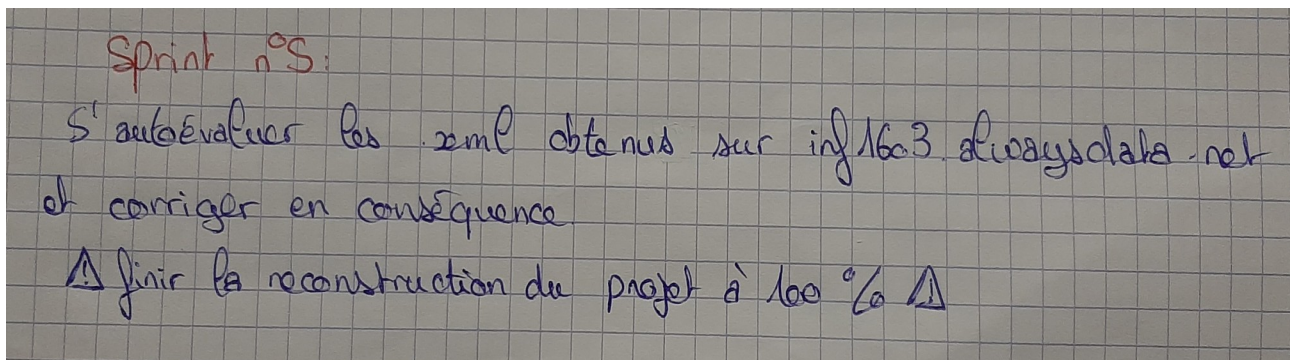 Sprint n°5:
S'autoévaluer les .xml obtenus sur inf1603.alwaysdata.net
et corriger en conséquence
⚠ finir la reconstruction du projet à 100 % ⚠